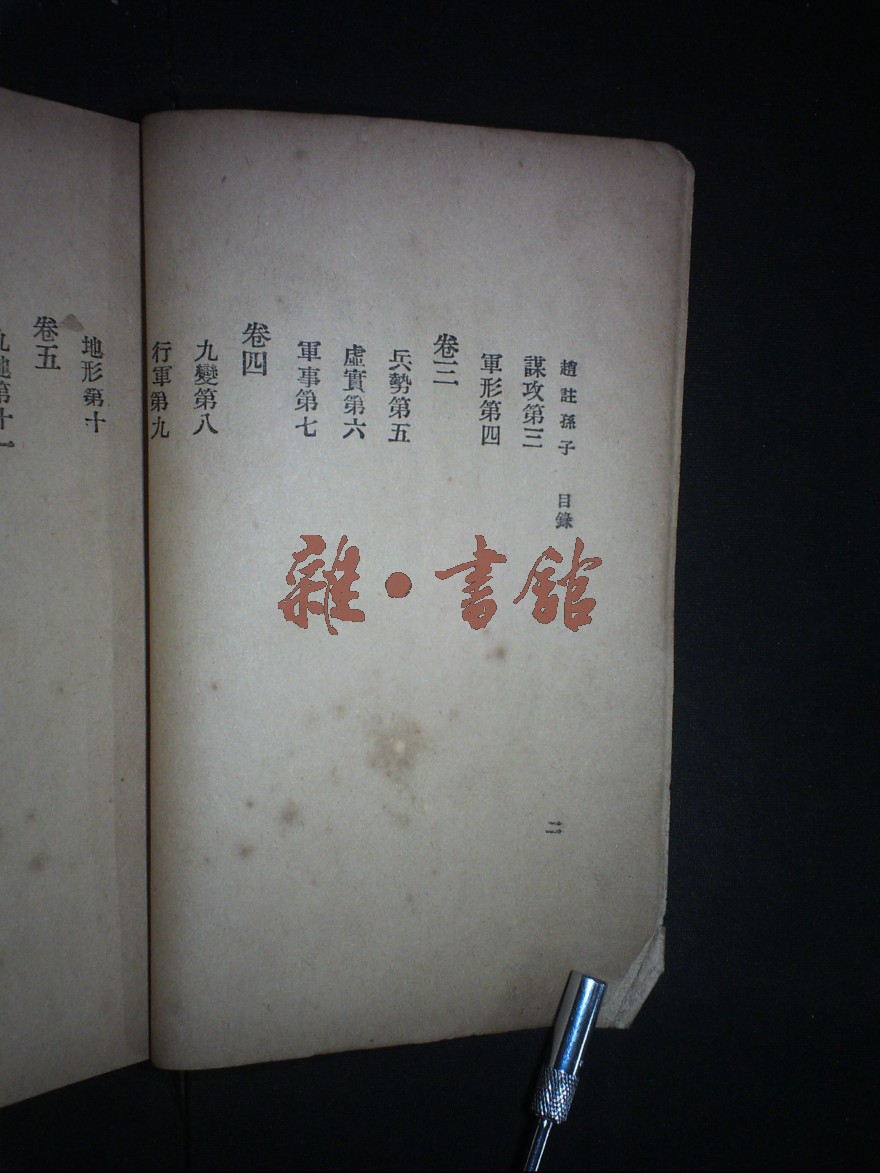 趙註孫子 目錄
謀攻第三
軍形第四
卷三
兵勢第五
虛實第六
軍事第七
卷四
九變第八
行軍第九
二
地形第十
卷五
第十一
雜·書館